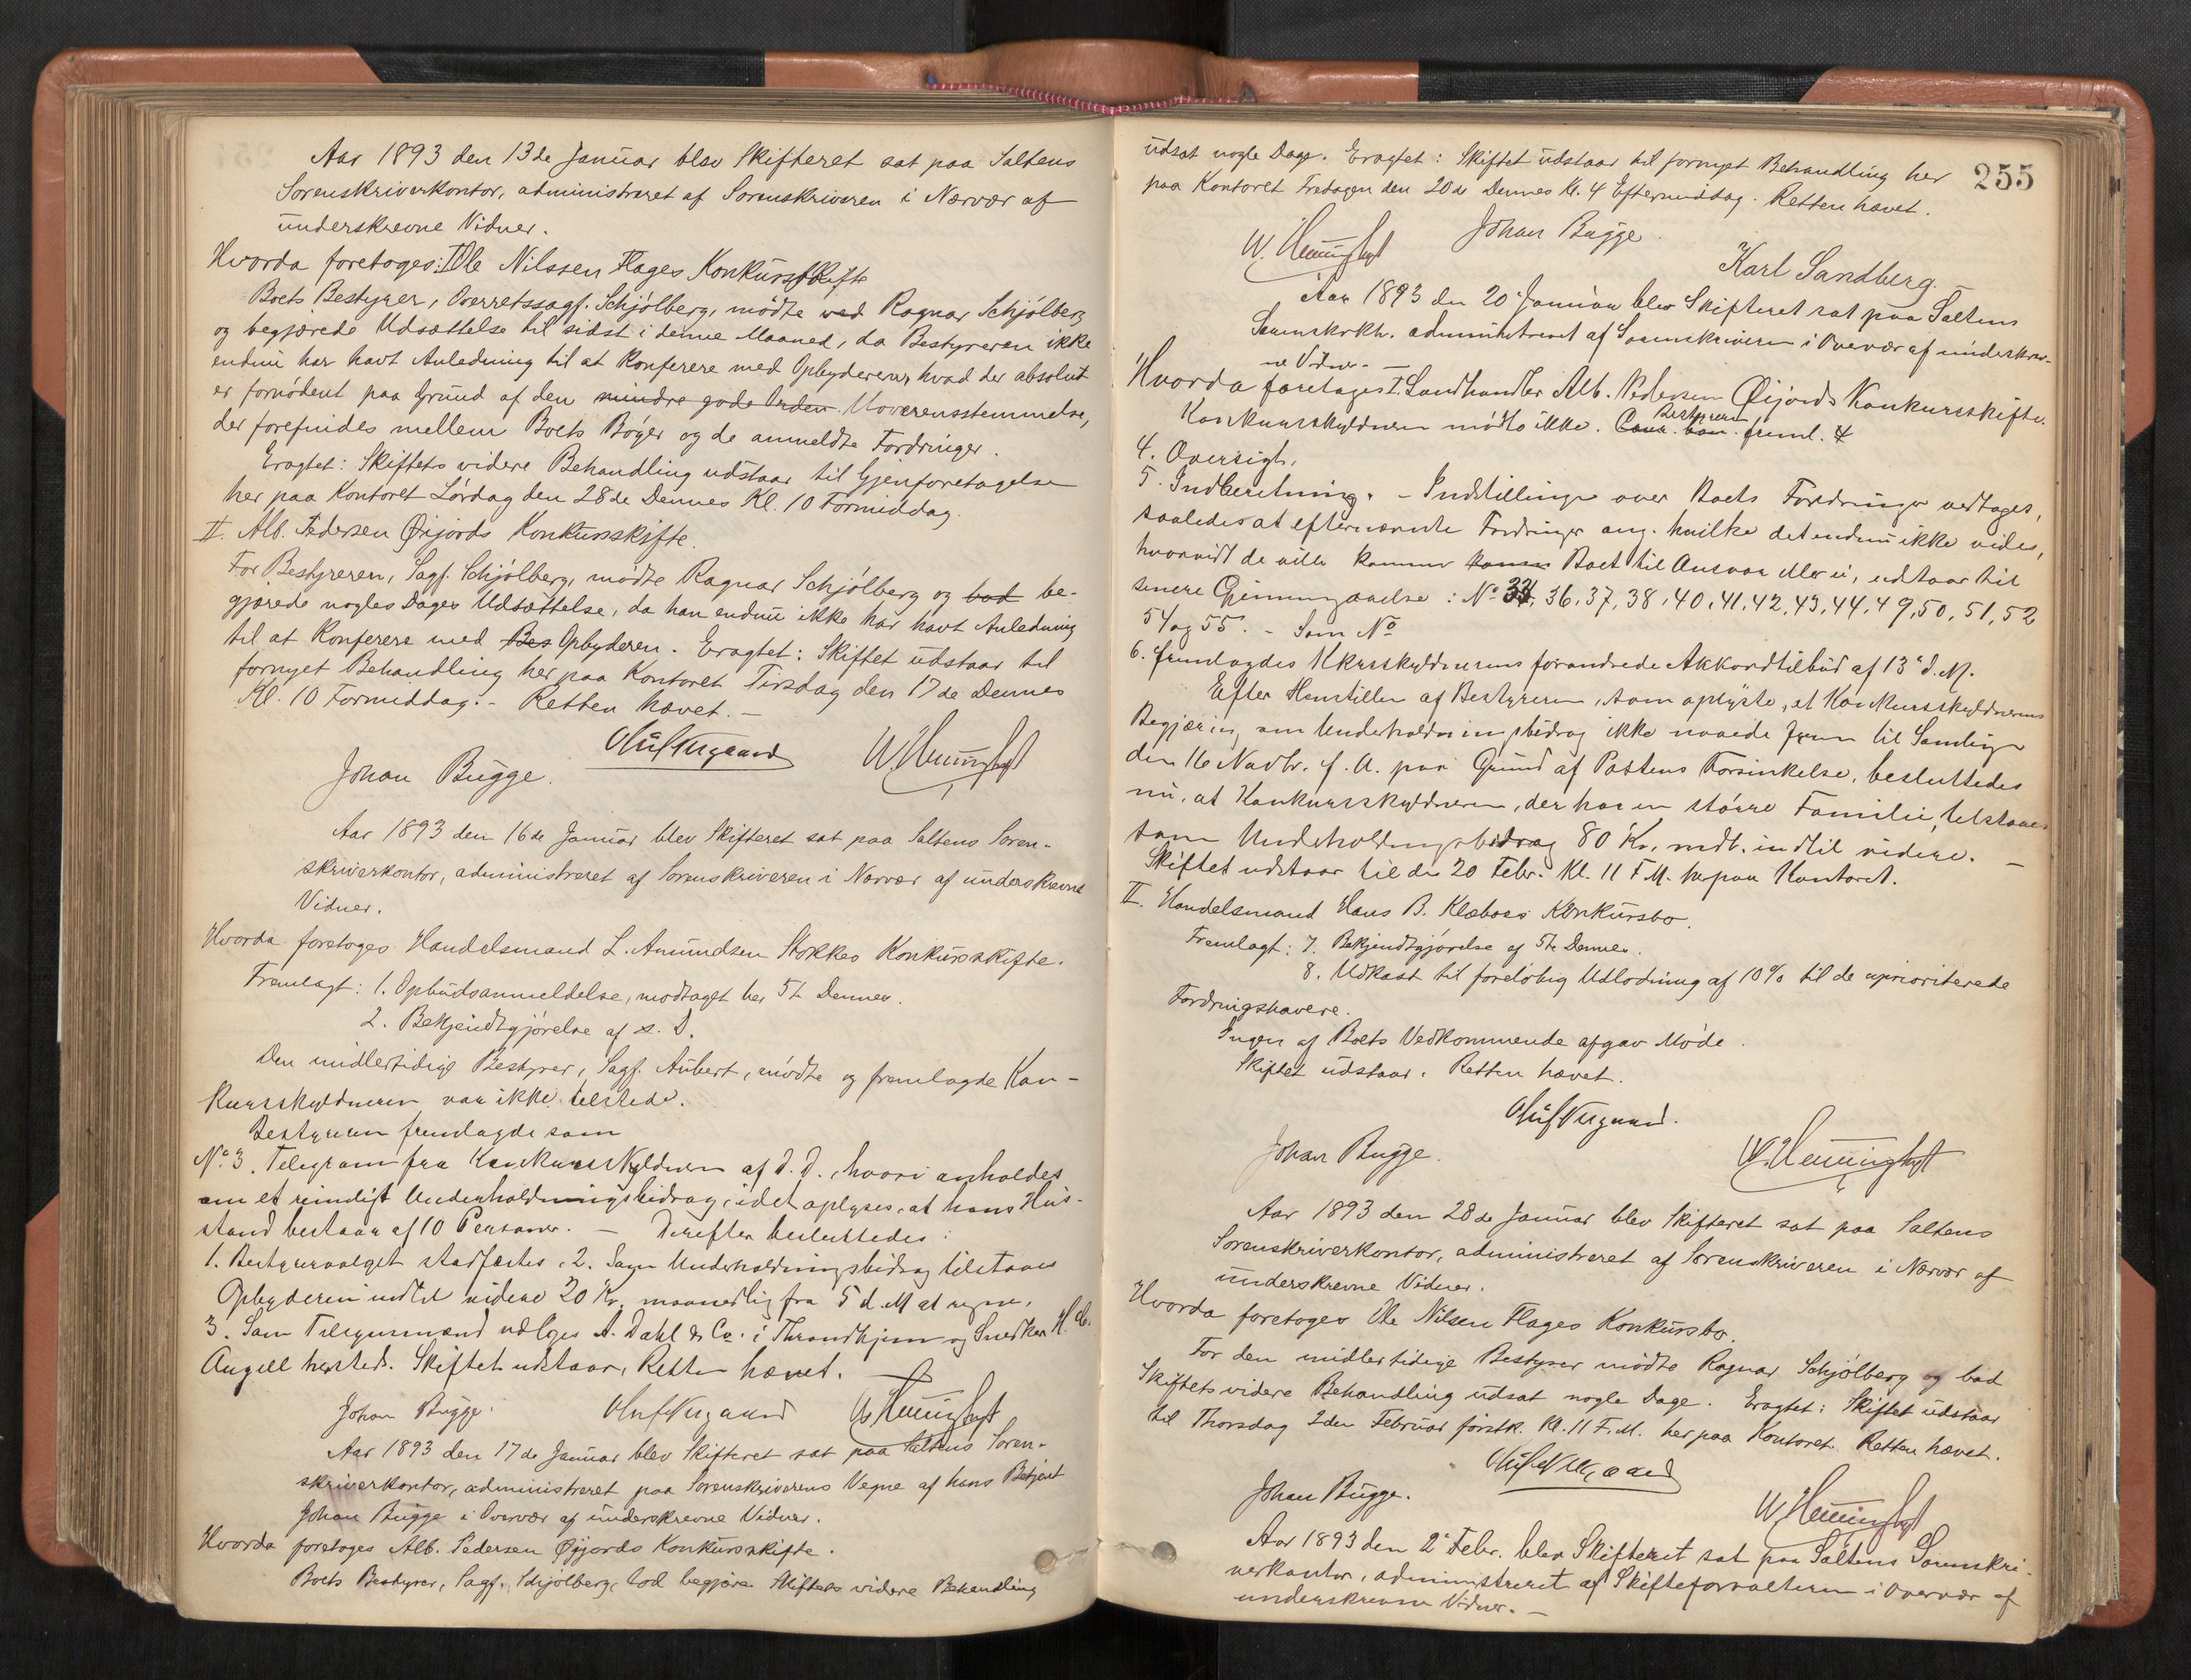 Aar 1893 den 13de Januar blev Skifteret sat paa Saltens
Sorenskriverkontor, administreret af Sorenskriveren i Nærvær af
underskrevne Vidner.
Hvorda foretoges: I Ole Nilssen Flages Konkursskifte
Boets Bestyrer, Overretssagf. Schjølberg, mødte ved Ragnar Schjølberg
og begjærede Udsættelse til sidst i denne Maaned, da Bestyreren ikke
endnu har havt Anledning til at konferere med Opbyderen, hvad der absolut
er fornødent paa Grund af den mindre gode Orden Uoverensstemmelse,
der forefindes mellem Boets Bøger og de anmeldte Fordringer.
Eragtet: Skiftets videre Behandling udstaar til Gjenforetagelse
her paa Kontoret Lørdag den 28de Dennes Kl. 10 Formiddag.
II. Alb. Pedersen Øijords Konkursskifte.
For Bestyreren, Sagf. Schjølberg, mødte Ragnar Schjølberg og bad be-
gjærede nogles Dages Udsættelse, da han endnu ikke har havt Anledning
til at konferere med Bes Opbyderen. Eragtet: Skiftet udstaar til
fornyet Behandling her paa Kontoret Tirsdag den 17de Dennes
Kl. 10 Formiddag. - Retten hævet. -
Johan Bugge.
Aar 1893 den 16de Januar blev Skifteret sat paa Saltens Soren-
skriverkontor, administreret af Sorenskriveren i Nærvær af underskrevne
Vidner.
Hvorda foretoges Handelsmand L. Amundsen Stokkes Konkursskifte.
Fremlagt: 1. Opbudsanmeldelse, modtaget her 5te Dennes.
2. Bekjendtgjørelse af s. D.
Den midlertidige Bestyrer, Sagf. Aubert, mødte og fremlagde Kon-
kursskyldneren var ikke tilstede.
Bestyreren fremlagde som
No. 3. Telegram fra Konkursskyldneren af D. D., hvori anholdes
om et rimeligt Underholdningsbidrag, idet oplyses, at hans Hus-
stand bestaar af 10 Personer. - Derefter besluttedes:
1. Bestyrervalget stadfæstes. 2. Som Underholdningsbidrag tilstaaes
Opbyderen indtil videre 20 Kr. maanedlig fra 5 d. M at regne.
3. Som Tilsynsmænd udtages A. Dahl & Co. i Throndhjem og Snedker H.
Angell hersteds. Skiftet udstaar, Retten hævet.
Johan Bugge.
Aar 1893 den 17de Januar blev Skifteret sat paa Saltens Soren-
skriverkontor, administreret paa Sorenskriverens Vegne af hans Betjent
Johan Bugge i Overvær af underskrevne Vidner.
Hvorda foretoges Alb. Pedersen Øijords Konkursskifte.
Boets Bestyrer, Sagf. Schjølberg, lod begjære Skiftets videre Behandling
255
udsat nogle Dage. Eragtet: Skiftet udstaar til fornyet Behandling her
paa Kontoret Fredagen den 20de Dennes Kl. 4 Eftermiddag. Retten hævet.
Johan Bugge.
Karl Sandberg.
Aar 1893 den 20 Januar blev Skifteret sat paa Saltens
Sorenskrkt. administreret af Sorenskriveren i Overvær af underskrev-
ne Vidner. -
Hvorda foretoges I. Landhandler Alb. Pedersen Øijords Konkursskifte.
Konkursskyldneren mødte ikke. Bestyreren freml. 4
4. Oversigt.
5. Indberetning. - Indstillinger over Boets Fordringer vedtages,
saaledes at efternævnte Fordringer ang. hvilke det endnu ikke vides,
hvorvidt de ville komme Boet til Ansvar eller ei, udstaar til
senere Gjennemgaaelse: No 34, 36, 37, 38, 40, 41, 42, 43, 44, 49, 50, 51, 52
54 og 55. - Som No
6. fremlagdes Kkursskyldnerens forandrede Akkordtilbud af 13 d. M.
Efter Henstillen af Bestyreren, som oplyste, at Konkursskyldnerens
Begjæring om Underholdningsbidrag ikke naaede frem til Samlingen
den 16 Novbr. f. A. paa Grund af Postens Forsinkelse, besluttedes
nu, at Konkursskyldneren, der har en større Familie, tilstaaes
som Underholdningsbidrag 80 Kr. mdt. indtil videre. -
Skiftet udstaar til den 20 Febr. Kl. 11 F.M. her paa Kontoret.
II. Handelsmand Hans B. Klæboes Konkursbo.
Fremlagt: 7. Bekjendtgjørelse af 5te Dennes.
8. Udkast til foreløbig Udlodning af 10% til de uprioriterede
Fordringshavere.
Ingen af Boets Vedkommende afgav Møde.
Skiftet udstaar. Retten hævet.
Johan Bugge.
Aar 1893 den 28de Januar blev Skifteret sat paa Saltens
Sorenskriverkontor, administreret af Sorenskriveren i Nærvær af
underskrevne Vidner.
Hvorda foretoges Ole Nilsen Flages Konkursbo.
For den midlertidige Bestyrer mødte Ragnar Schjølberg og bad
Skiftets videre Behandling udsat nogle Dage. Eragtet: Skiftet udstaar
til Thorsdag 2den Februar førstk. Kl. 11 F.M. her paa Kontoret. Retten hævet.
Johan Bugge.
Aar 1893 den 2 Febr. blev Skifteret sat paa Saltens Sorenskri-
verkontor, administreret af Skifteforvalteren i Overvær af
underskrevne Vidner. -